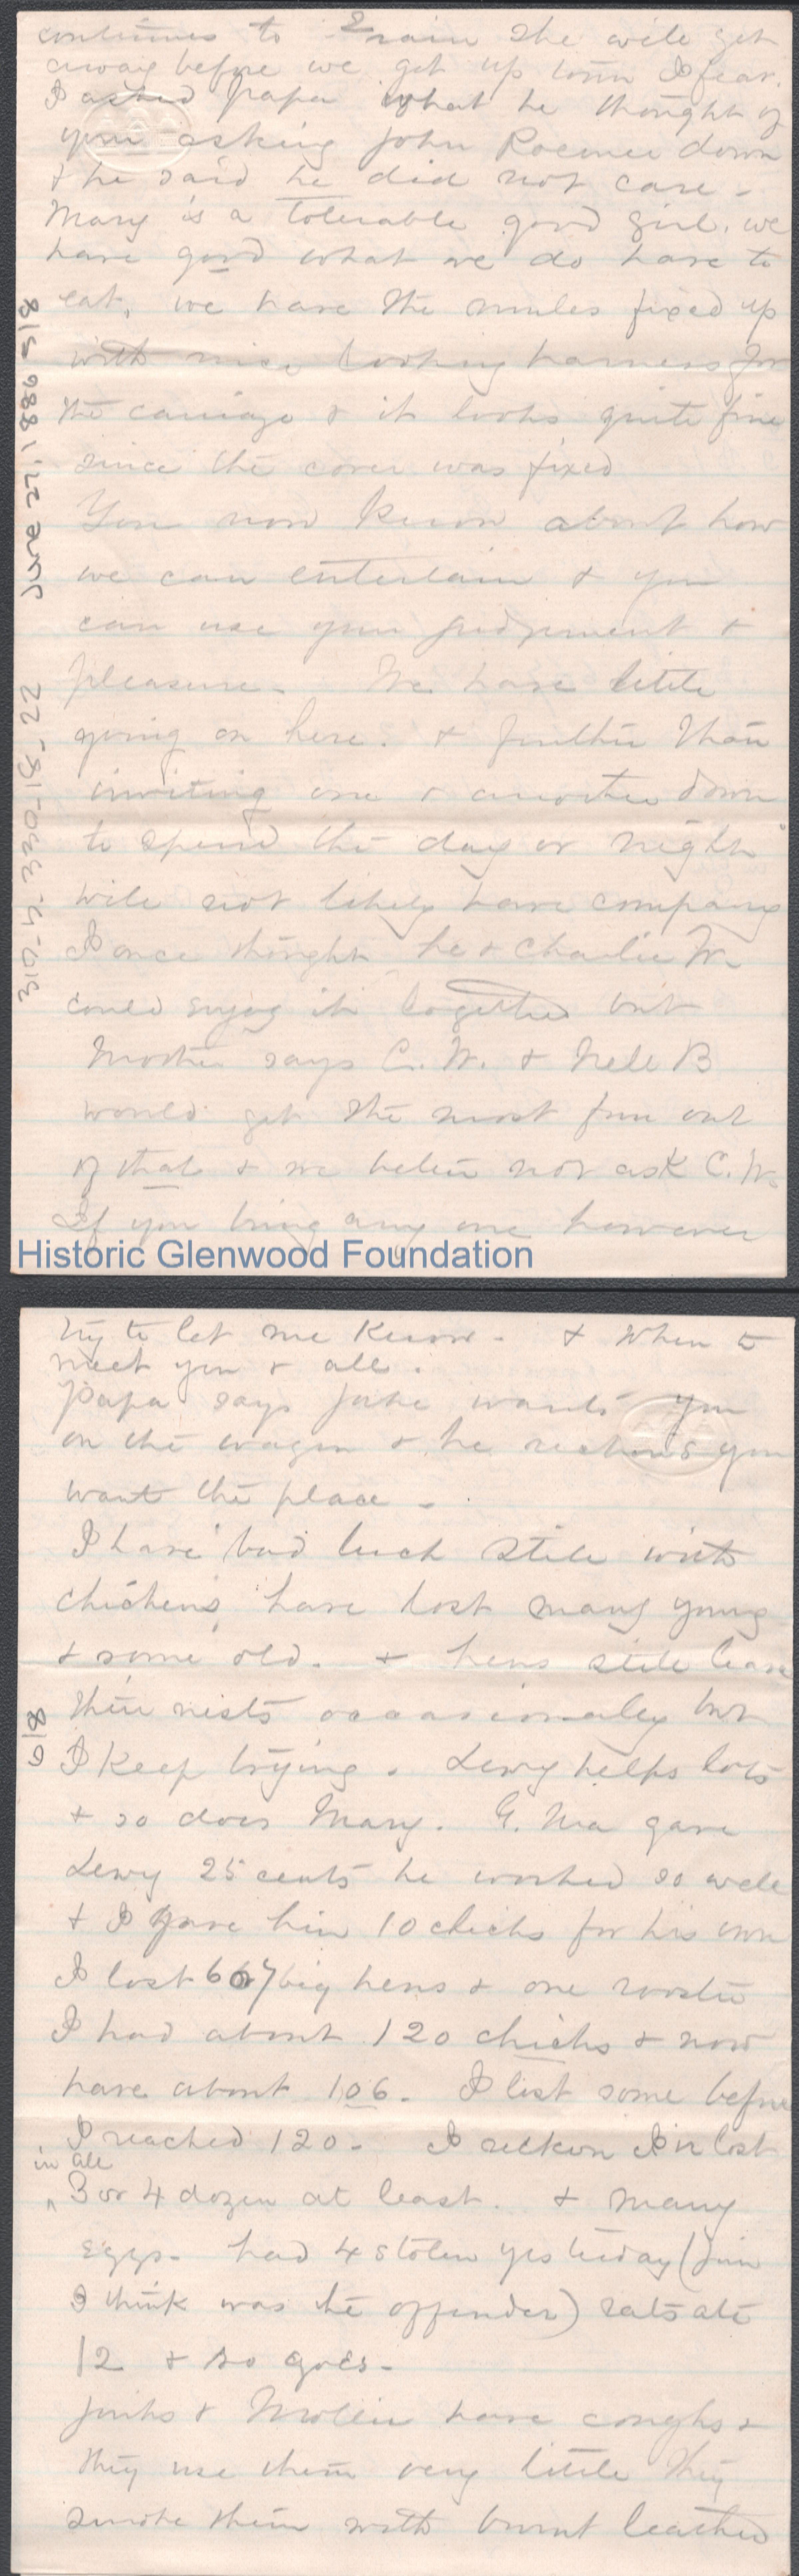 continues to rain she will get
away before we get up town I fear.
I asked papa what he thought of
you asking John down
& he said he did not care -
Mary is a tolerable good girl. we
have good what we do have to
eat, we have the mules fixed up
with nice looking harness for
the carriage & it looks quite fine
since the cover was fixed
You now know about how
we can entertain & you
can use your judgement &
pleasure - We have little
going on here. & further than
inviting one & another down
to spend the day or night
will not likely have company
I once thought he & Charlie W.
could enjoy it together but
Mother says C. W. & Nell B
would get the most fun out
of that & we better not ask C. W.
If you bring any one however
June 27, 1886 5/8
310-4-330-18-22
Historic Glenwood Foundation
try to let me know - & when to
meet you & all.
Papa says Jake wants you
on the wagon & he reckons you
want the place -
I have bad luck still with
chickens, have lost many young
& some old. & hens still leave
their nests occasionaley but
I keep trying. Lewy helps lots
& so does Mary. G. Ma gave
Lewy 25 cents he worked so well
& I gave him 10 chicks for his own
I lost 6 or 7 big hens & one rooster
I had about 120 chicks & now
have about 106 - I lost some before
I reached 120 - I reckon I've lost
in all
^ 3 or 4 dozen at least. & many
eggs - had 4 stolen yesterday (Jim
I think was the offender) rats ate
12 & so goes -
Jinks & Mollie have coughs &
they use them very little they
smoke them with burnt leather
6/8